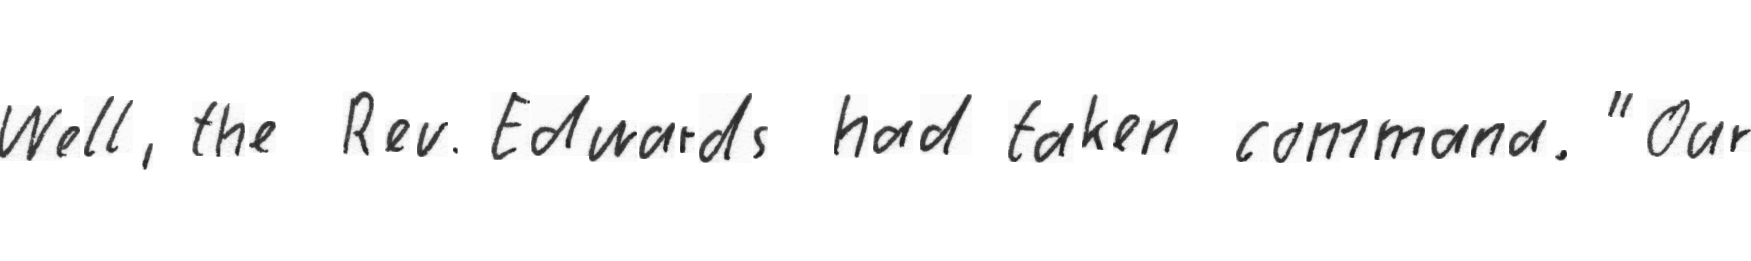 Well, the Rev. Edwards had taken commana. "Our